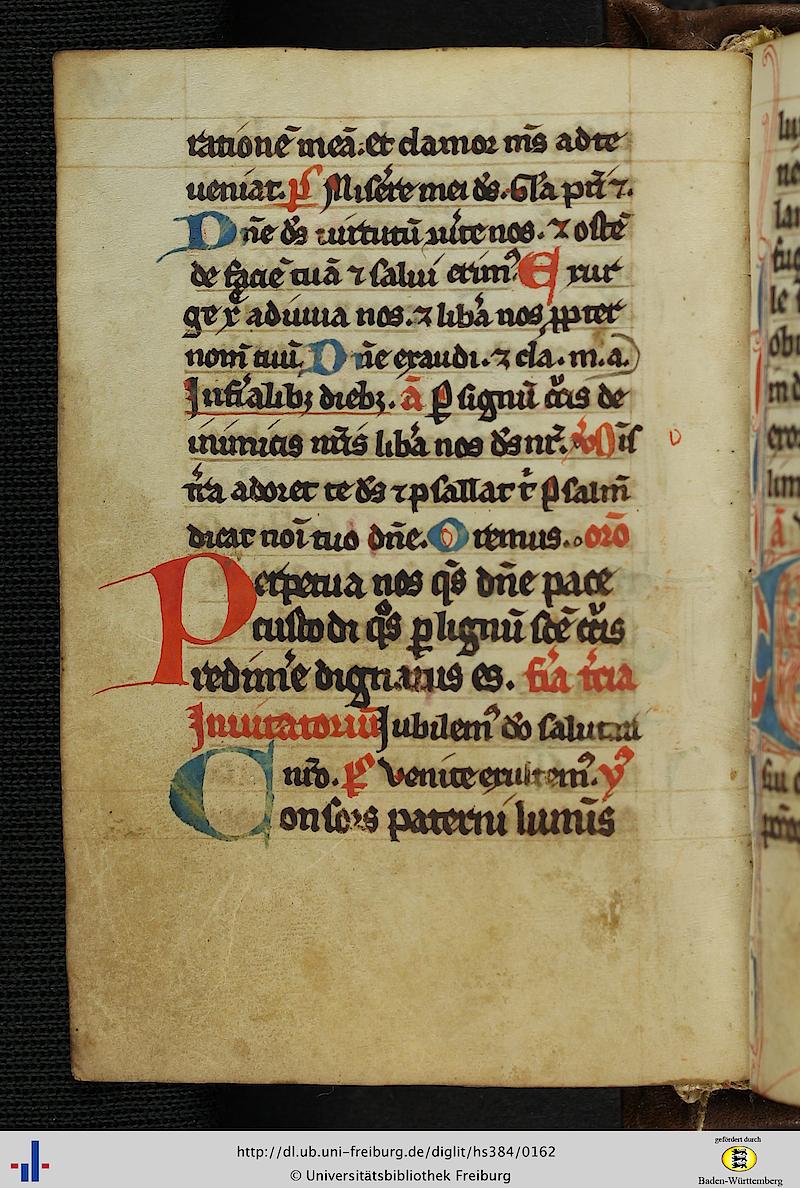 rationē meā. et clamor ms̄ ad te
ueniat. p̄s Miserere mei ds̄. Gl̓a pr̄i ⁊.
Dn̄e ds̄ uirtutū ↄuerte nos. ⁊ ostē
de faciē tuā ⁊ salui erim᷒ Exur
ge xp̄e adiuua nos. ⁊ lib̓a nos ꝓpter
nom̄ tuū. Dn̄e exaudi. ⁊ cla. m. a.
In ferialibꝫ diebꝫ. ā ꝑ signū cͬucis de
inimicis nr̄is lib̓a nos ds̄ nr̄. Om̄is
tr̄a adoret te ds̄ ⁊ psallat t̄ psalm̄
dicat noī tuo dn̄e. Oremus. orō
Perpetua nos qs̄ dn̄e pace
custodi qͦs ꝑ lignū scē cͬucis
redim̓e dignatus es. fr̄ia tr̄cia
Inuitatoriū Jubilem᷒ dō salutari
nr̄o. p̄s Venite exultem᷒. y᷒
Consors paterni lumīs
http://dl.ub.uni-freiburg.de/diglit/hs384/0162
© Universitätsbibliothek Freiburg
gefördert durch
Baden-Württemberg